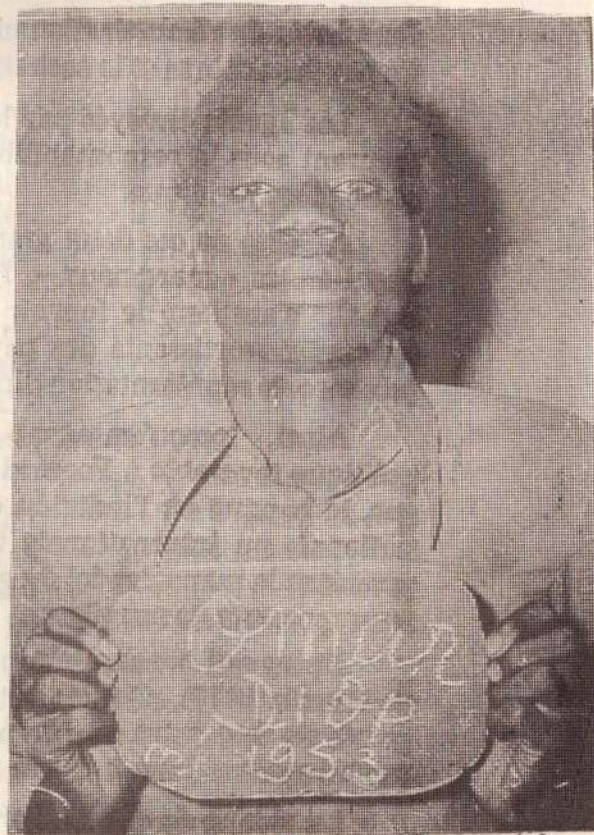 Omar
Diop
n/ 1953